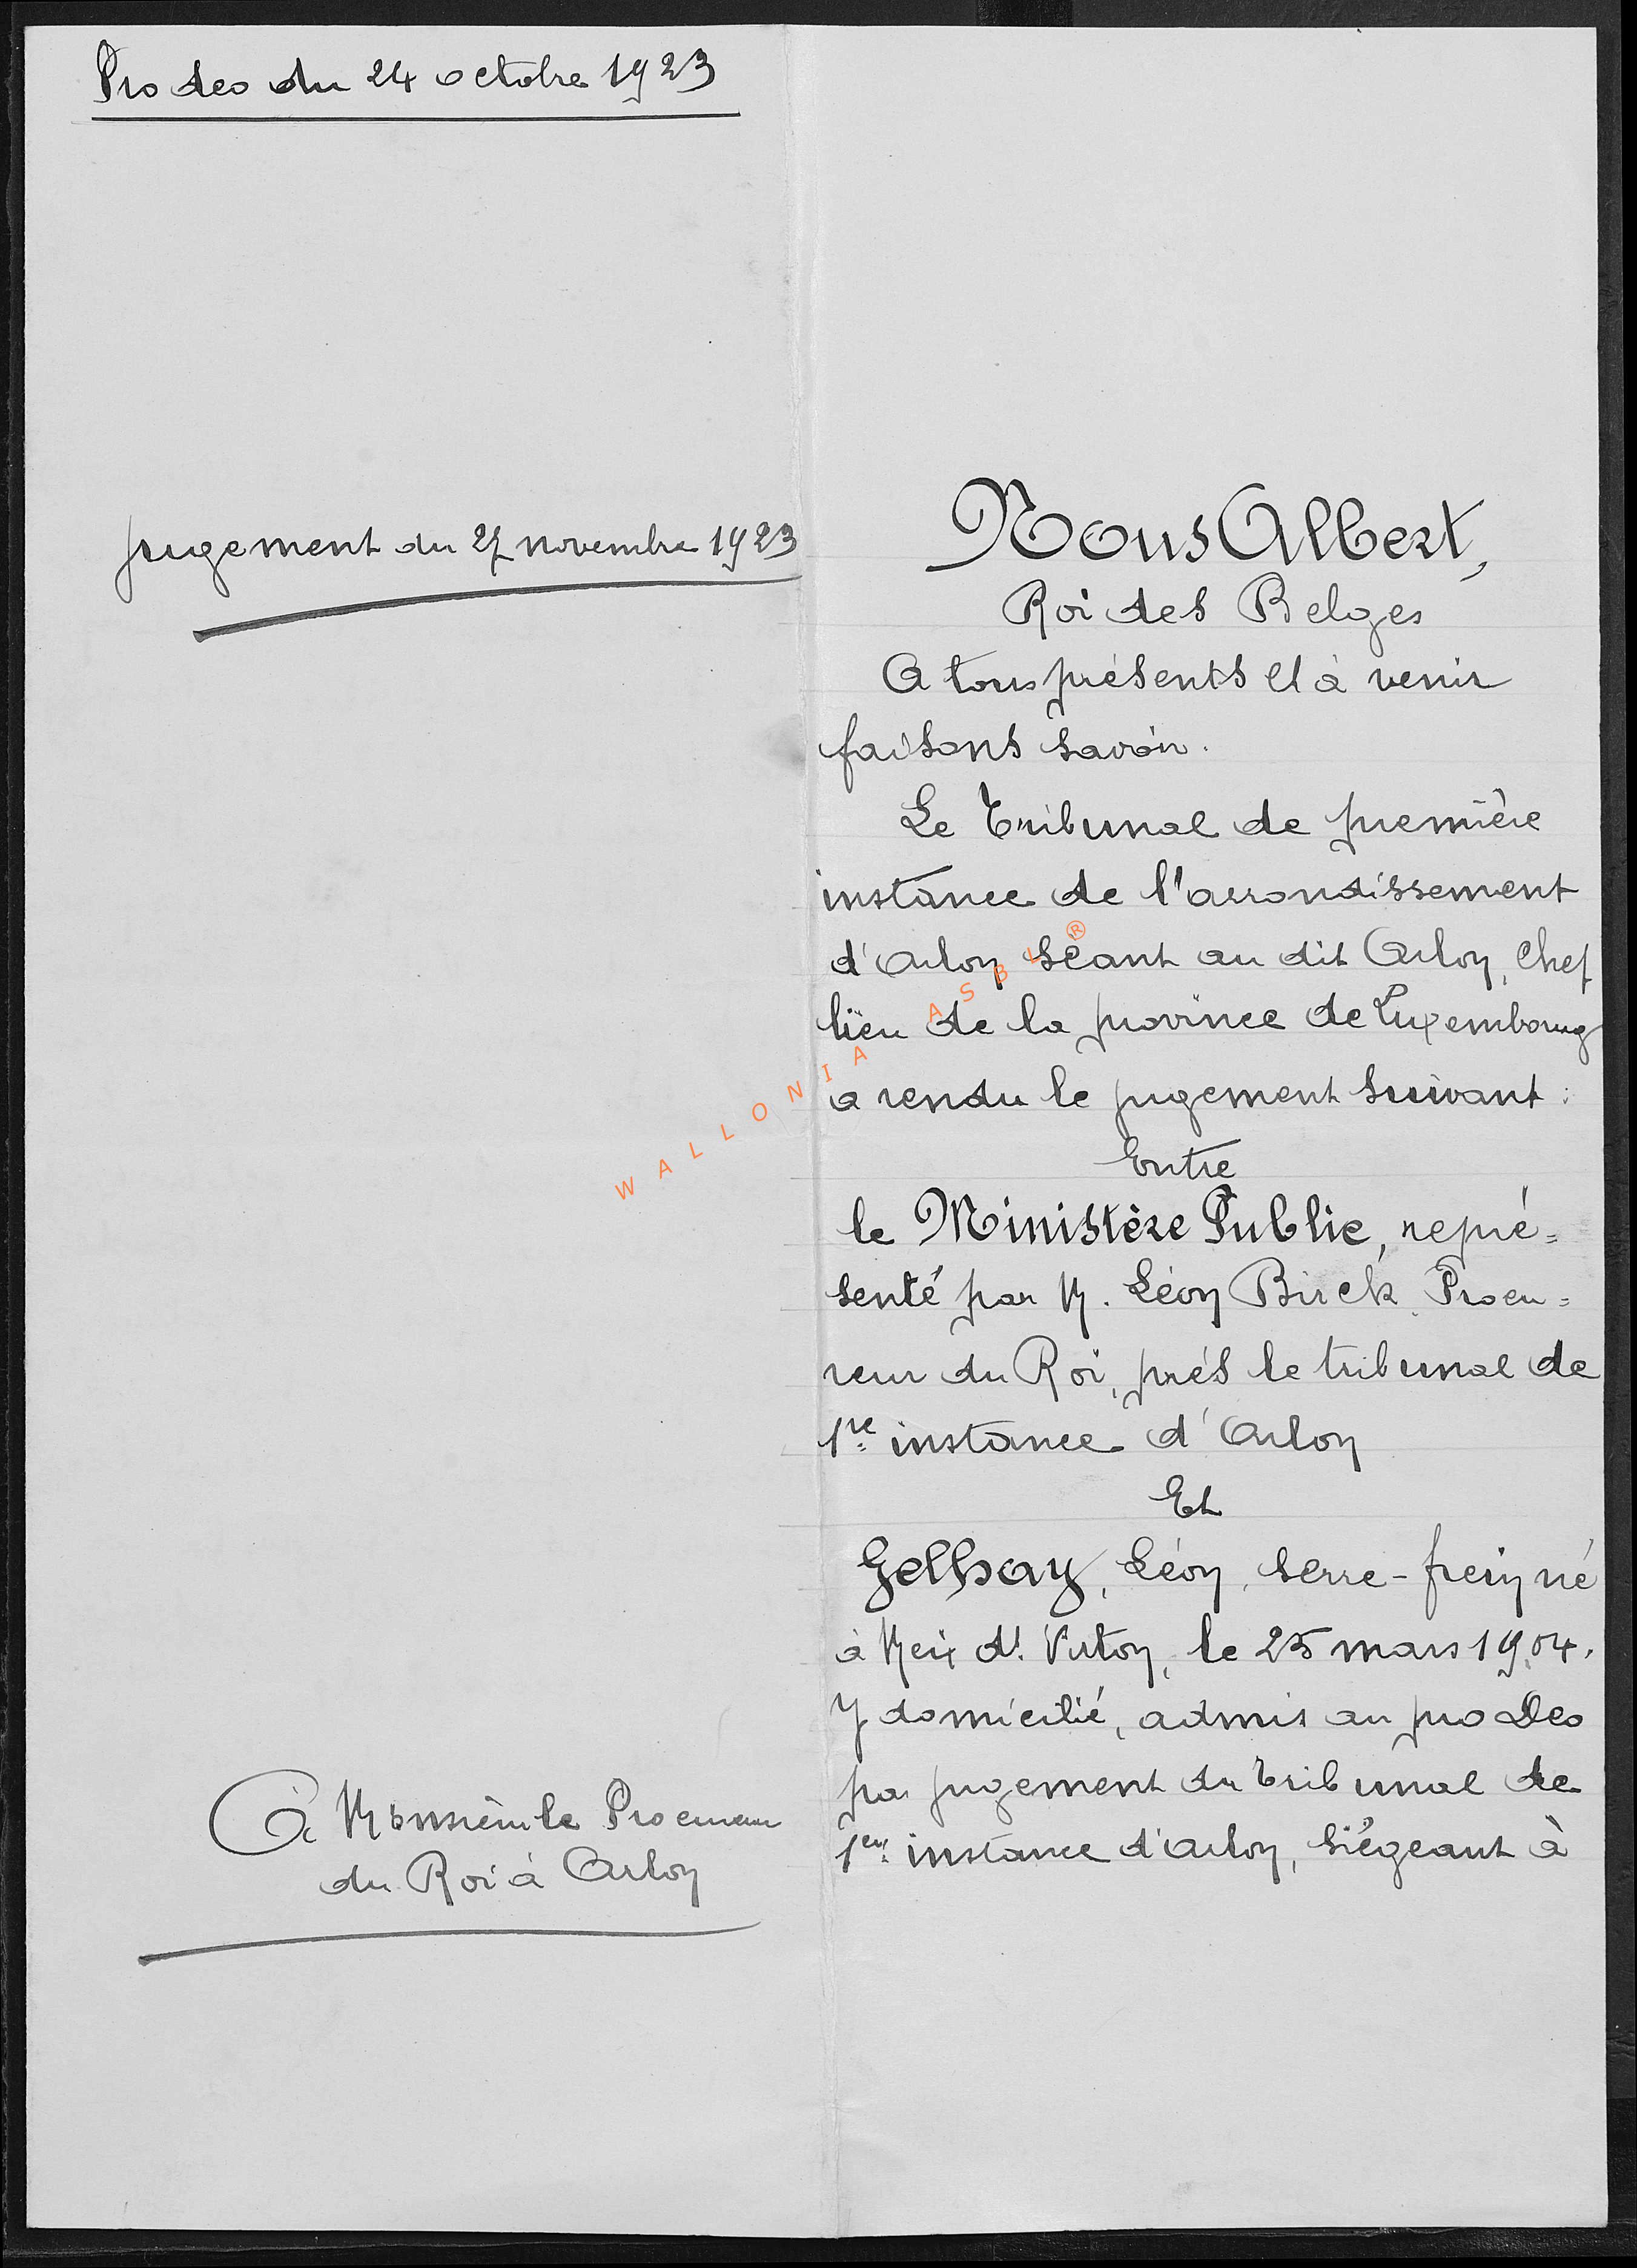 Pro deo du 24 octobre 1923
jugement du 27 novembre 1923
A Monsieur le Procureur
du Roi à Arlon
Nous Albert,
Roi des Belges
A tous présents et à venir
faisons savoir.
Le Tribunal de première
instance de l'arrondissement
d'Arlon séant au dit Arlon, chef
lieu de la province de Luxembourg
a rendu le jugement suivant :
Entre
le Ministère Public, repré=
senté par M. Léon Birck, Procu=
reur du Roi, près le tribunal de
1re instance d'Arlon
Et
Gelhay, Léon, serre-frein né
à Meix dt Virton, le 25 mars 1904.
y domicilié, admis au pro Deo
par jugement du tribunal de
1ere instance d'Arlon, siégeant à
WALLONIA ASBL ®